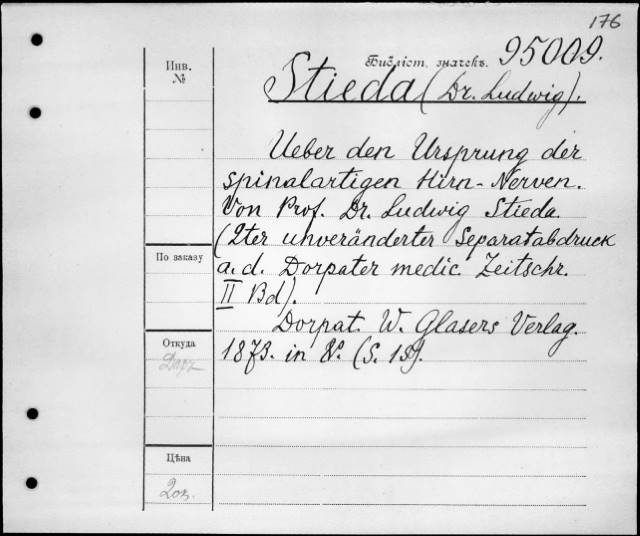 176
Инв.
№
Библіот. значекъ. 95009.
Stieda (Dr. Ludwig).
Ueber den Ursprung der
spinalartigen Hirn-Nerven.
Von Prof. Dr. Ludwig Stieda.
(2ter unveränderter Separatabdruck
По заказу
a. d. Dorpater medic. Zeitschr.
II Bd).
Dorpat. W. Glasers Verlag.
Откуда
1873. in 8°. (S.
Цѣна